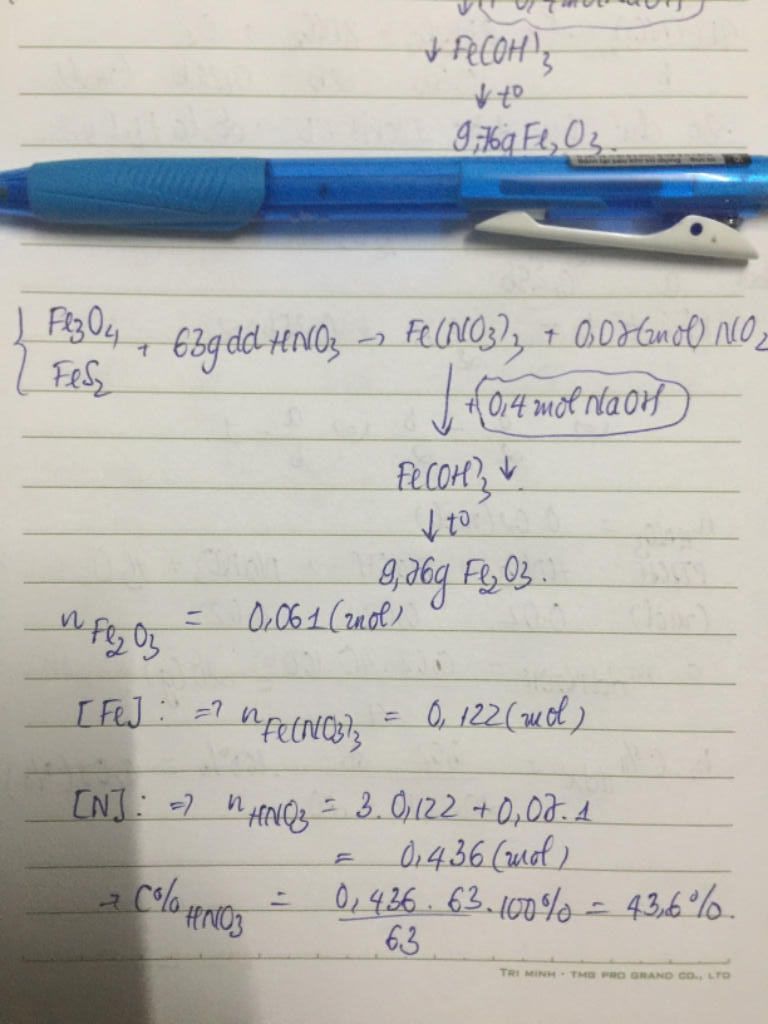 0,4 mol NaOH)
↓ Fe(OH)3
↓ t°
9,76g Fe2O3.
{ Fe3O4, FeS2 + 63g dd HNO3 → Fe(NO3)3 + 0,07(mol) NO2
↓ + 0,4 mol NaOH
Fe(OH)3 ↓
↓ t°
9,76g Fe2O3.
nFe2O3 = 0,061 (mol)
[Fe]: => nFe(NO3)3 = 0,122 (mol)
[N]: => nHNO3 = 3.0,122 + 0,07.1
= 0,436 (mol)
→ C%HNO3 = 0,436.63.100% / 63 = 43,6%.
TRI MINH - TMG PRO GRAND CO., LTD